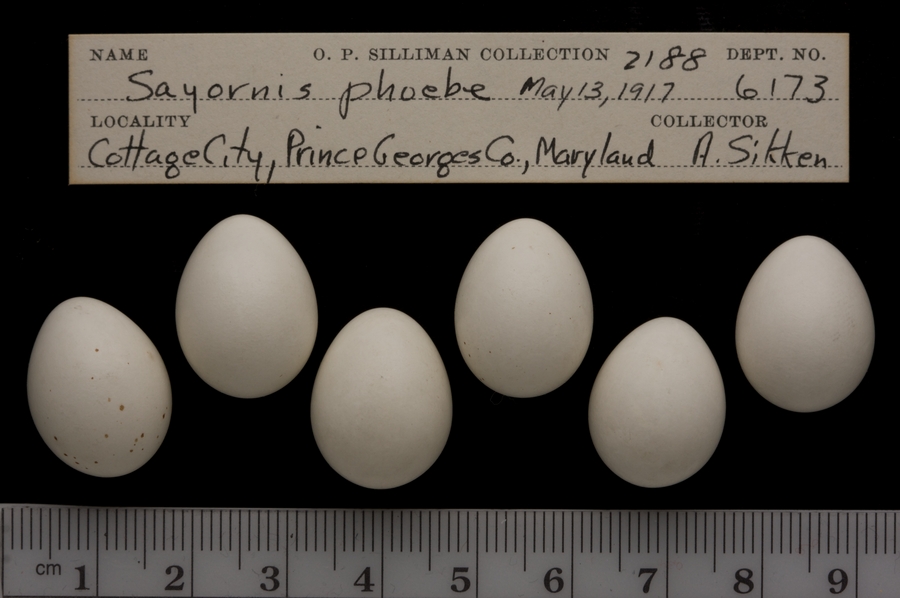 NAME O. P. SILLIMAN COLLECTION 2188 DEPT. NO.
Sayornis phoebe May 13, 1917 6173
LOCALITY COLLECTOR
Cottage City, Prince Georges Co., Maryland A. Sikken
cm 1 2 3 4 5 6 7 8 9